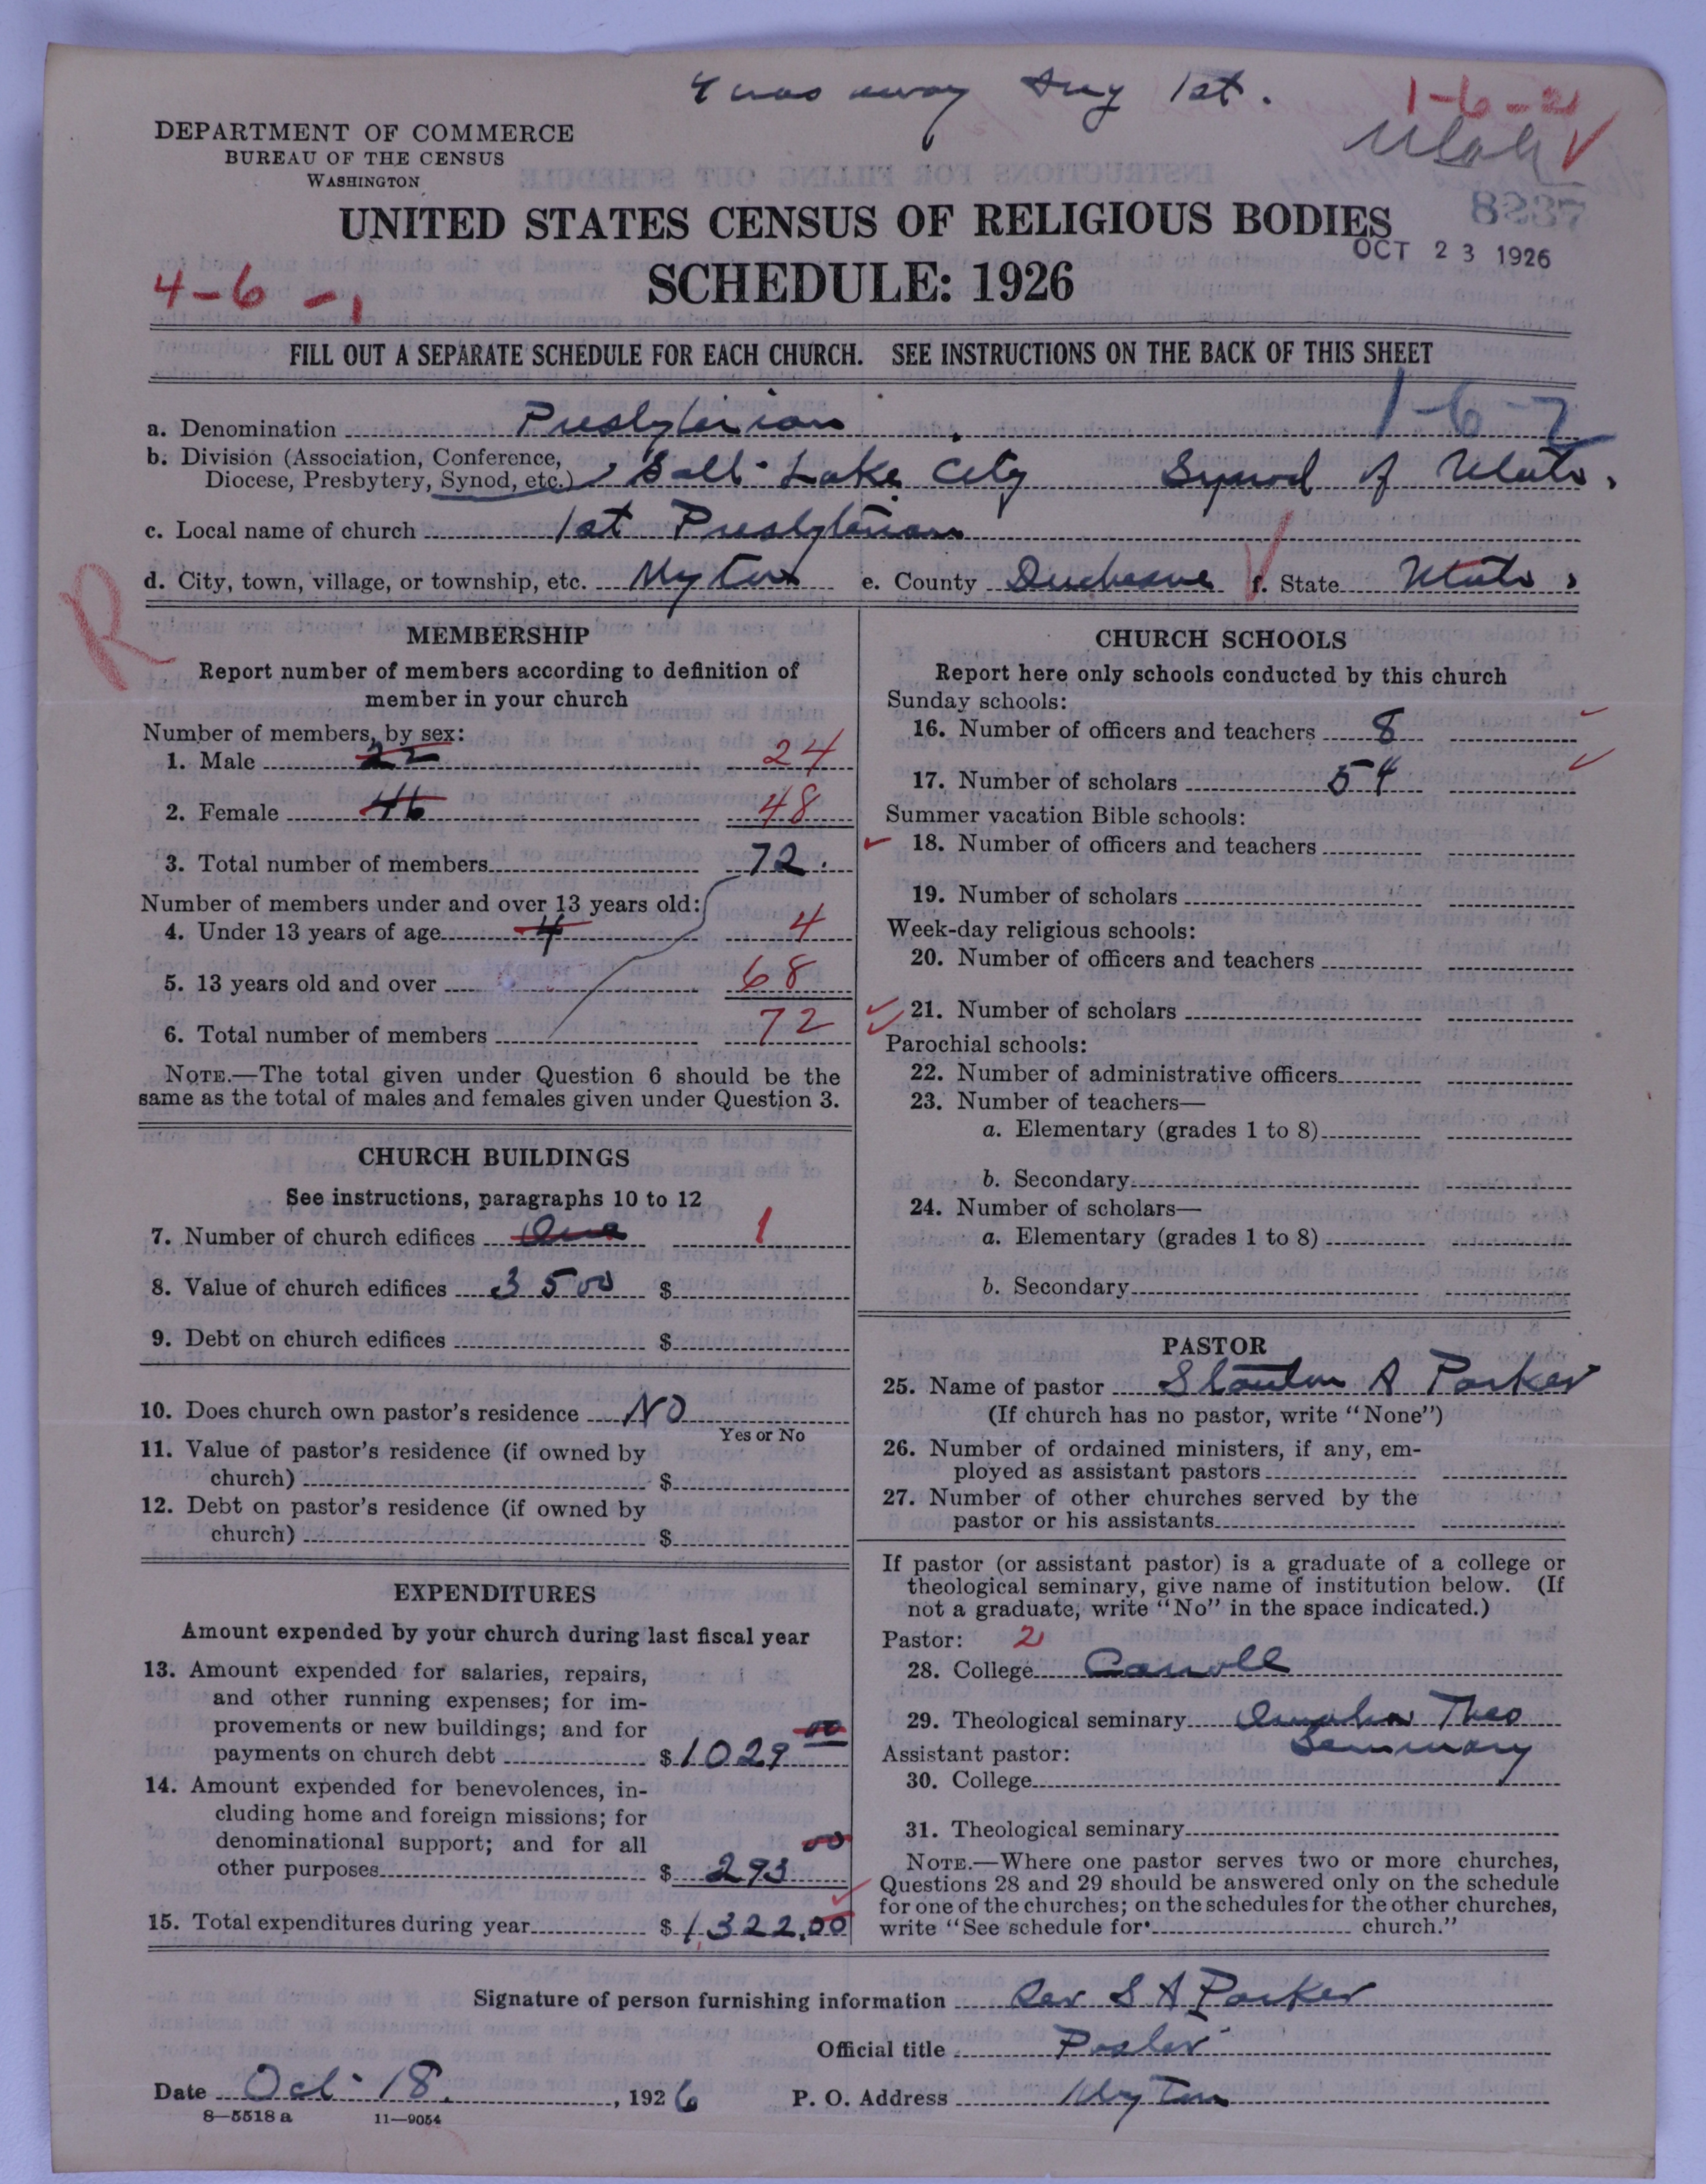 I was away Aug 1st.
1-6-2
Utah
DEPARTMENT OF COMMERCE
BUREAU OF THE CENSUS
WASHINGTON
8237
UNITED STATES CENSUS OF RELIGIOUS BODIES
OCT 23 1926
4-6-1
SCHEDULE: 1926
FILL OUT A SEPARATE SCHEDULE FOR EACH CHURCH. SEE INSTRUCTIONS ON THE BACK OF THIS SHEET
1-6-2
a. Denomination Presbyterian
b. Division (Association, Conference,
Diocese, Presbytery, Synod, etc.) Salt Lake City Synod of Utah.
c. Local name of church 1st Presbyterian
d. City, town, village, or township, etc. Myton e. County Duchesne f. State Utah.
R
MEMBERSHIP
Report number of members according to definition of
member in your church
Number of members, by sex:
1. Male 22 24
2. Female 46 48
3. Total number of members 72.
Number of members under and over 13 years old:
4. Under 13 years of age 4 4
5. 13 years old and over 68
6. Total number of members 72
NOTE.—The total given under Question 6 should be the
same as the total of males and females given under Question 3.
CHURCH BUILDINGS
See instructions, paragraphs 10 to 12
7. Number of church edifices One 1
8. Value of church edifices 3500 $
9. Debt on church edifices $
10. Does church own pastor's residence NO
Yes or No
11. Value of pastor's residence (if owned by
church) $
12. Debt on pastor's residence (if owned by
church) $
EXPENDITURES
Amount expended by your church during last fiscal year
13. Amount expended for salaries, repairs,
and other running expenses; for im-
provements or new buildings; and for
payments on church debt $1029 00
14. Amount expended for benevolences, in-
cluding home and foreign missions; for
denominational support; and for all
other purposes $ 293 00
15. Total expenditures during year $1,322.00
CHURCH SCHOOLS
Report here only schools conducted by this church
Sunday schools:
16. Number of officers and teachers 8
17. Number of scholars 54
Summer vacation Bible schools:
18. Number of officers and teachers
19. Number of scholars
Week-day religious schools:
20. Number of officers and teachers
21. Number of scholars
Parochial schools:
22. Number of administrative officers
23. Number of teachers—
a. Elementary (grades 1 to 8)
b. Secondary
24. Number of scholars—
a. Elementary (grades 1 to 8)
b. Secondary
PASTOR
25. Name of pastor Stanton A Parker
(If church has no pastor, write "None")
26. Number of ordained ministers, if any, em-
ployed as assistant pastors
27. Number of other churches served by the
pastor or his assistants
If pastor (or assistant pastor) is a graduate of a college or
theological seminary, give name of institution below. (If
not a graduate, write "No" in the space indicated.)
Pastor: 2
28. College Carroll
29. Theological seminary Omaha Theo
Seminary
Assistant pastor:
30. College
31. Theological seminary
NOTE.—Where one pastor serves two or more churches,
Questions 28 and 29 should be answered only on the schedule
for one of the churches; on the schedules for the other churches,
write "See schedule for church."
Signature of person furnishing information Rev S A Parker
Official title Pastor
Date Oct. 18, 1926 P. O. Address Myton
8—5518 a 11—9054